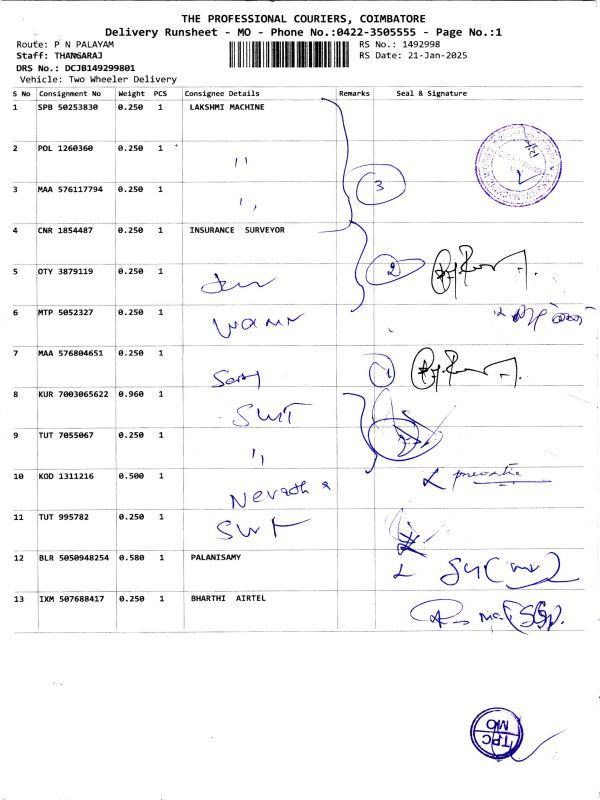 THE PROFESSIONAL COURIERS, COIMBATORE
Delivery Runsheet - MO - Phone No.:0422-3505555 - Page No.:1
Route: P N PALAYAM RS No.: 1492998
Staff: THANGARAJ RS Date: 21-Jan-2025
DRS No.: DCJB149299801
Vehicle: Two Wheeler Delivery
S No Consignment No Weight PCS Consignee Details Remarks Seal & Signature
1 SPB 50253830 0.250 1 LAKSHMI MACHINE
2 POL 1260360 0.250 1
"
3 MAA 576117794 0.250 1 3
"
4 CNR 1854487 0.250 1 INSURANCE SURVEYOR
5 OTY 3879119 0.250 1 2
6 MTP 5052327 0.250 1
7 MAA 576804651 0.250 1 1
8 KUR 7003065622 0.960 1
SWT
9 TUT 7055067 0.250 1
"
10 KOD 1311216 0.500 1
11 TUT 995782 0.250 1
SWT
12 BLR 5050948254 0.580 1 PALANISAMY
13 IXM 507688417 0.250 1 BHARTHI AIRTEL
TPC
MO